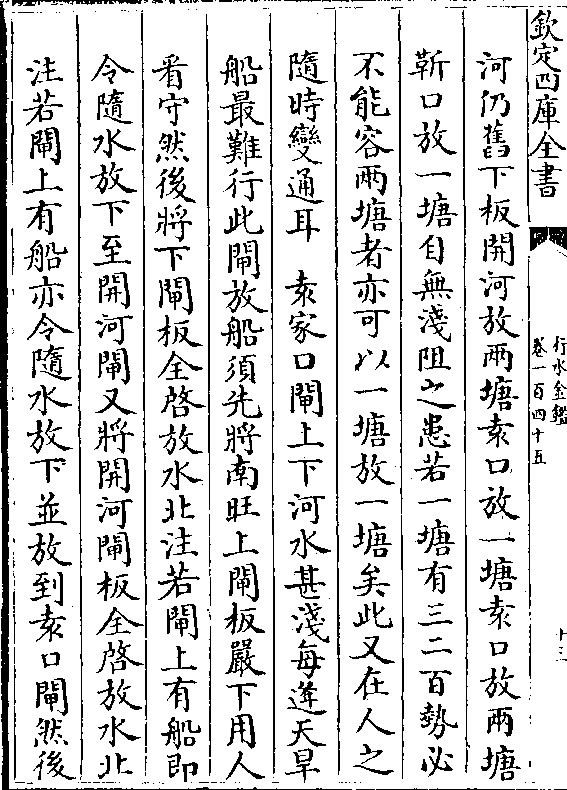 欽定四庫全書
行水金鑑
卷一百四十五
十三
河仍舊下板開河放兩塘袁口放一塘袁口放兩塘
靳口放一塘自無淺阻之患若一塘有三二百勢必
不能容兩塘者亦可以一塘放一塘矣此又在人之
隨時變通耳　袁家口閘上下河水甚淺每逢天旱
船最難行此閘放船須先將南旺上閘板嚴下用人
看守然後將下閘板全啓放水北注若閘上有船即
令隨水放下至開河閘又將開河閘板全啓放水北
注若閘上有船亦令隨水放下並放到袁口閘然後